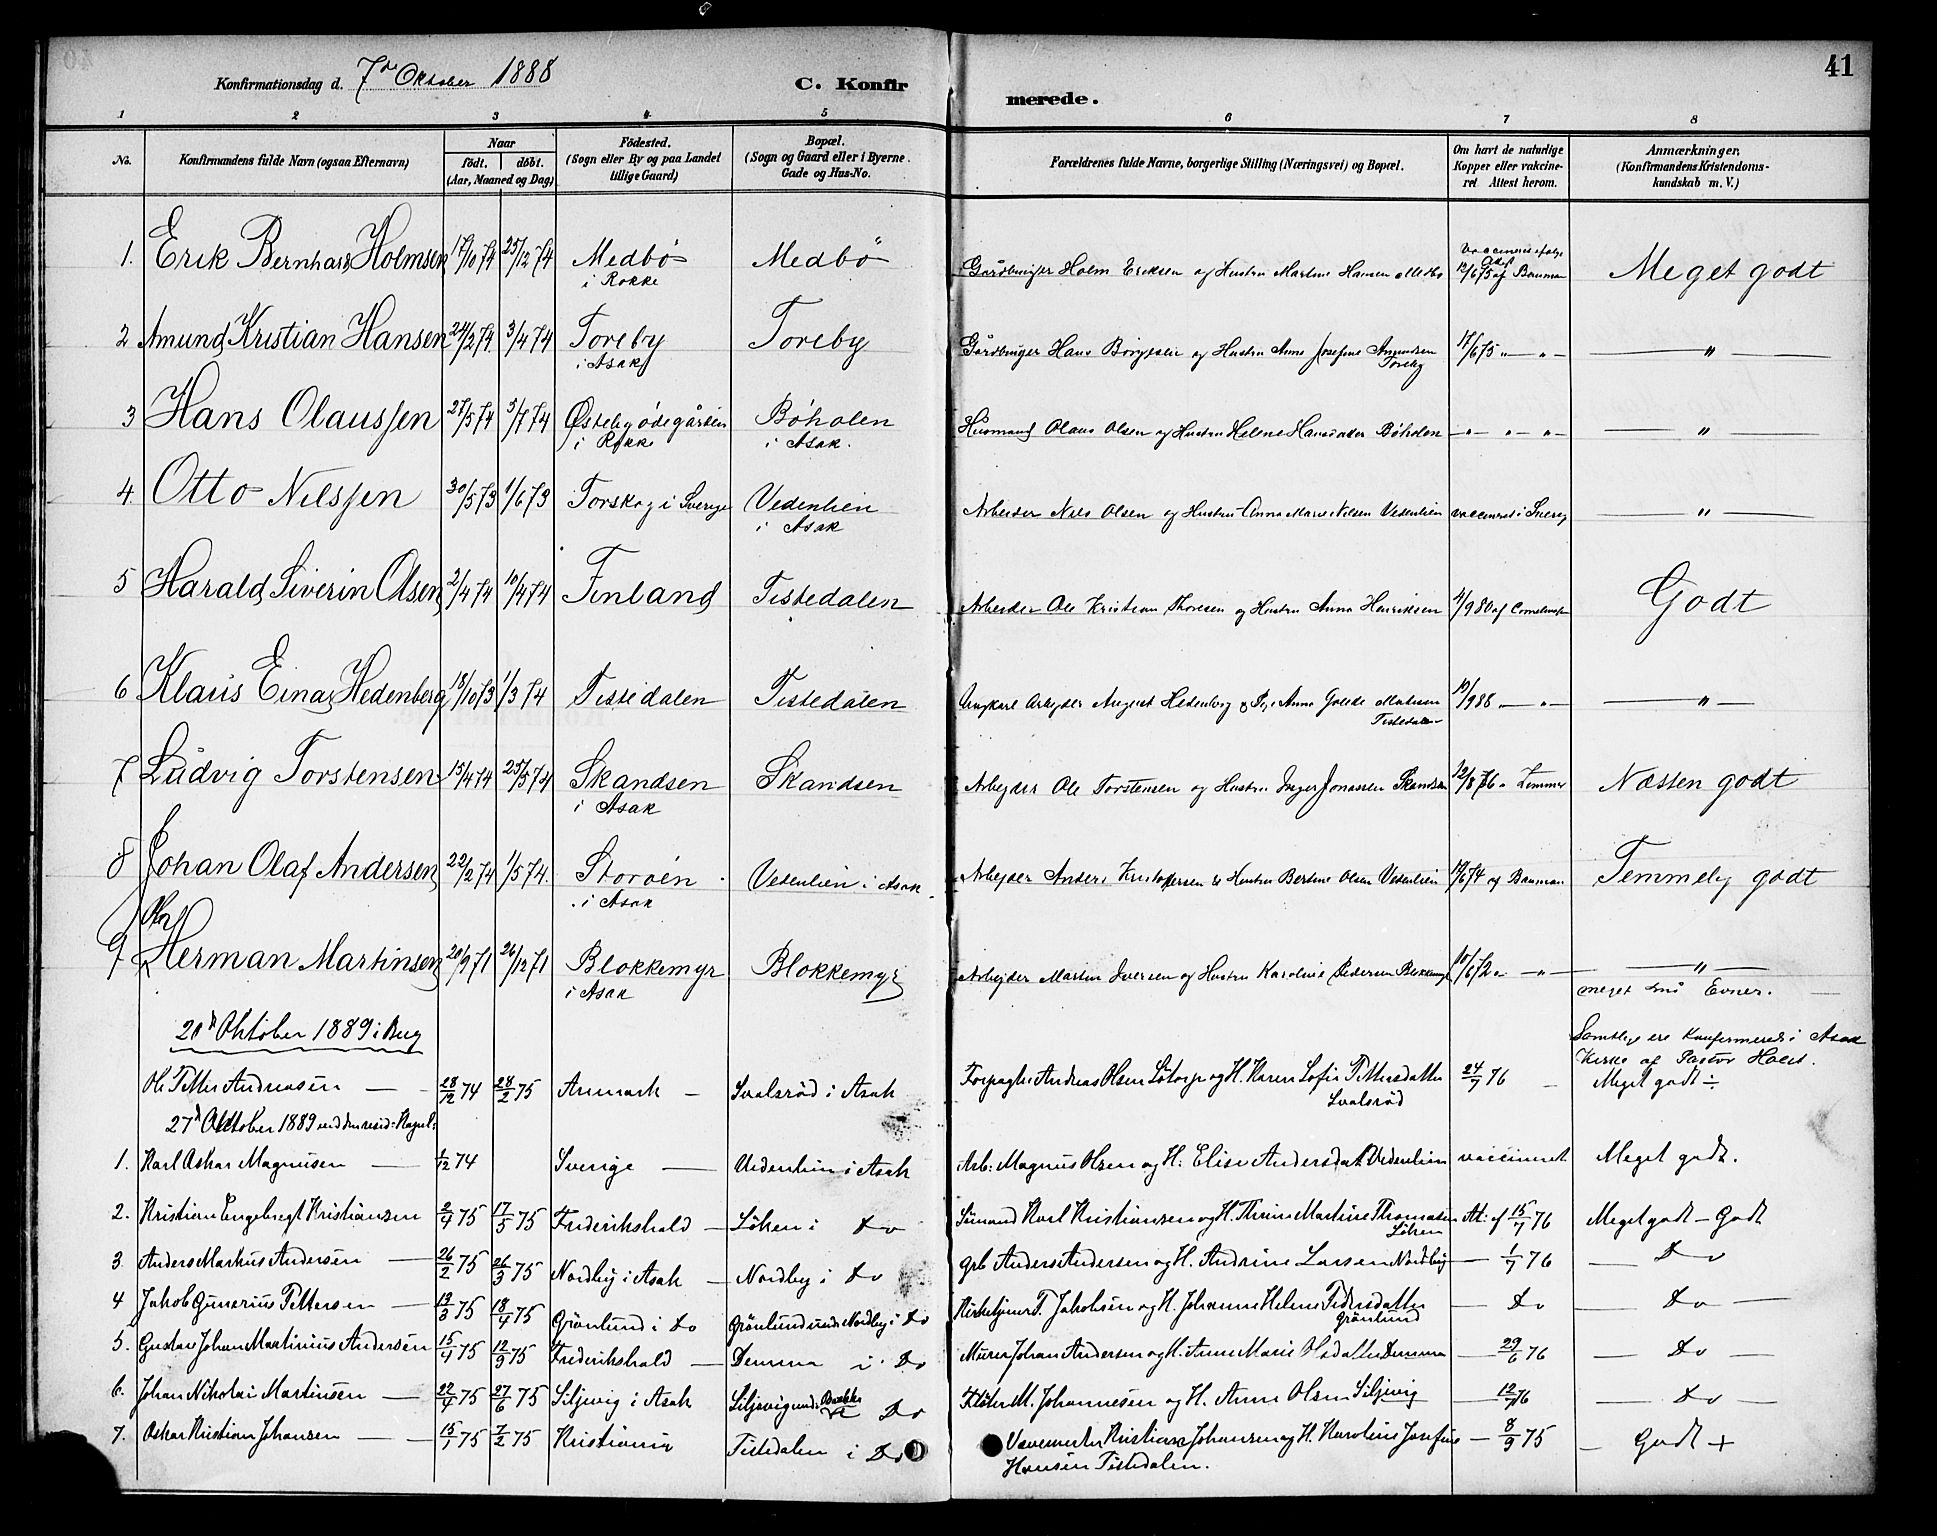 41
Konfirmationsdag d. 7de Oktober 1888
C. Konfirmerede.
1 2 3 4 5 6 7 8
No. Konfirmandens fulde Navn (ogsaa Efternavn) Naar født. døbt. (Aar, Maaned og Dag) Fødested. (Sogn eller By og paa Landet tillige Gaard) Bopæl. (Sogn og Gaard eller i Byerne Gade og Hus-No. Forældrenes fulde Navne, borgerlige Stilling (Næringsvei) og Bopæl. Om havt de naturlige Kopper eller vakcineret Attest herom. Anmærkninger, (Konfirmandens Kristendomskundskab m. V.)
1. Erik Bernhard Holmsen 17/10 74 25/12 74 Medbø i Rokke Medbø Gårdbruger Holm Eriksen og Hustru Martine Hansen Medbø 12/6 75 af Bauman Meget godt
2 Amund Kristian Hansen 24/2 74 3/4 74 Toreby i Asak Toreby Gårdbruger Hans Børgesen og Hustru Anne Josefine Amundsen Toreby 17/6 75 " — " — — " —
3 Hans Olaussen 27/5 74 5/7 74 Østebyødegården i Rokke Bøholen i Asak. Husmand Olaus Olsen og Hustru Helene Hansdatter Bøholen — " — " — " — — " —
4. Otto Nilssen 30/5 73 1/6 73 Torskog i Sverige Vedenlien i Asak Arbeider Nils Olsen og Hustru Anna Marie Nilsen Vedenlien vaccineret i Sverig — " —
5 Harald Siverin Olsen 2/4 74 10/4 74 Finland Tistedalen Arbeider Ole Kristian Thoresen og Hustru Anna Henriksen 4/9 80 af Godt
6 Klaus Einar Hedenberg 18/10 73 1/3 74 Tistedalen Tistedalen Ungkarl Arbejder August Hedenberg og Pige Anne Tistedalen 10/9 88 — " — — " —
7 Ludvig Torstensen 15/4 74 25/5 74 Skandsen i Asak Skandsen Arbejder Ole Torstensen og Hustru Inger Jonassen Skandsen 12/8 76 " Zimmer Næsten godt
8 Johan Olaf Andersen 22/2 74 1/5 74. Storøen i Asak Vedenlien i Asak. Arbejder Anders Kristoffersen & Hustru Bertine Olsen Vedenlien 12/6 74 af Bauman Temmelig godt
9 Herman Martinsen 20/9 71 26/12 71 Blokkemyr i Asak Blokkemyr Arbejder Martin Iversen og Hustru Karoline Pedersen Blokkemyr 10/6 72 " — " — — " — meget små Evner.
Samtlige ere Konfirmeret i Asak Kirke af Pastor Holst.
20de Oktober 1889 i Berg
Ole Petter Andreasen — 28/12 74 28/2 75 Aremark — Svalsrød i Asak Forpagter Andreas Olsen Løtorp og H. Karen Sofie Pettersdatter Svalsrød 24/7 76 — Meget godt ÷
27de Oktober 1889 ved den resid: Kapel:
1. Karl Oskar Magnusen — 1/12 74 Sverige — Vedenlien i Asak Arb: Magnus Olsen og H: Elise Andersdat. Vedenlien vaccineret Meget godt.
2. Kristian Engebregt Kristiansen 2/4 75 17/5 75 Frederikshald — Løken i Do Sømand Karl Kristiansen og H. Thrine Martine Thomasen Løken At: af 15/7 76 Meget godt — Godt
3. Anders Markus Andersen — 26/2 75 26/3 75 Nordby i Asak — Nordby i Do grb Anders Andersen og H. Andrine Larsen Nordby — 1/7 76 — Do
4 Jakob Gunerius Pettersen — 13/3 75 18/4 75 Grønlund i Do Grønlund under Nordby i Do Kirketjener P. Jakobsen og H. Johanne Helene Pedersdatter Grønlund — Do — Do —
5. Gustav Johan Martinius Andersen 15/4 75 12/9 75 Frederikshald — Demma i Do Murer Johan Andersen og H. Anne Marie Olsdatter Demma — 29/6 76 — Do —
6. Johan Nikolai Martinsen — 22/4 75 27/6 75 Siljevig i Asak Siljevig under Do Fløter M. Johannesen og H. Anne Olsen Siljevig — 12/7 76 — Do —
7. Oskar Kristian Johansen — 15/1 75 7/2 75 Kristiania Tistedalen i Do Vævemester Kristian Johansen og H. Karoline Josefine Hansen Tistedalen. — 8/9 75 — Godt +